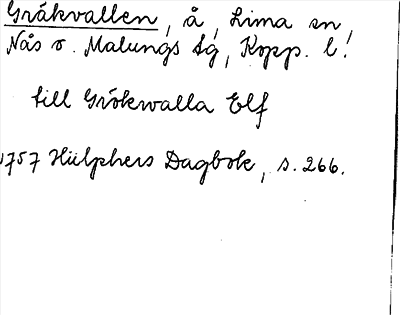 Gråkvallen, å, Lima sn
Nås o. Malungs tg, Kopp. l!
till Grökwalla Elf
1757 Hülphers Dagbok, s. 266.